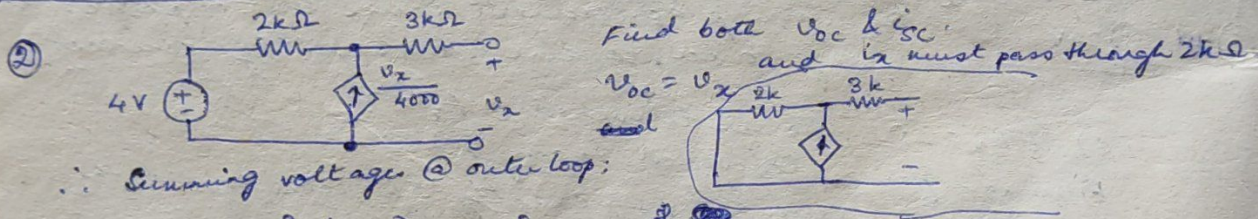 ②
2kΩ 3kΩ
4V + - vx/4000 + vx -
Find both voc & isc.
and ix must pass through 2kΩ
voc = vx
and
2k 3k
+
-
∴ Summing voltages @ outer loop: